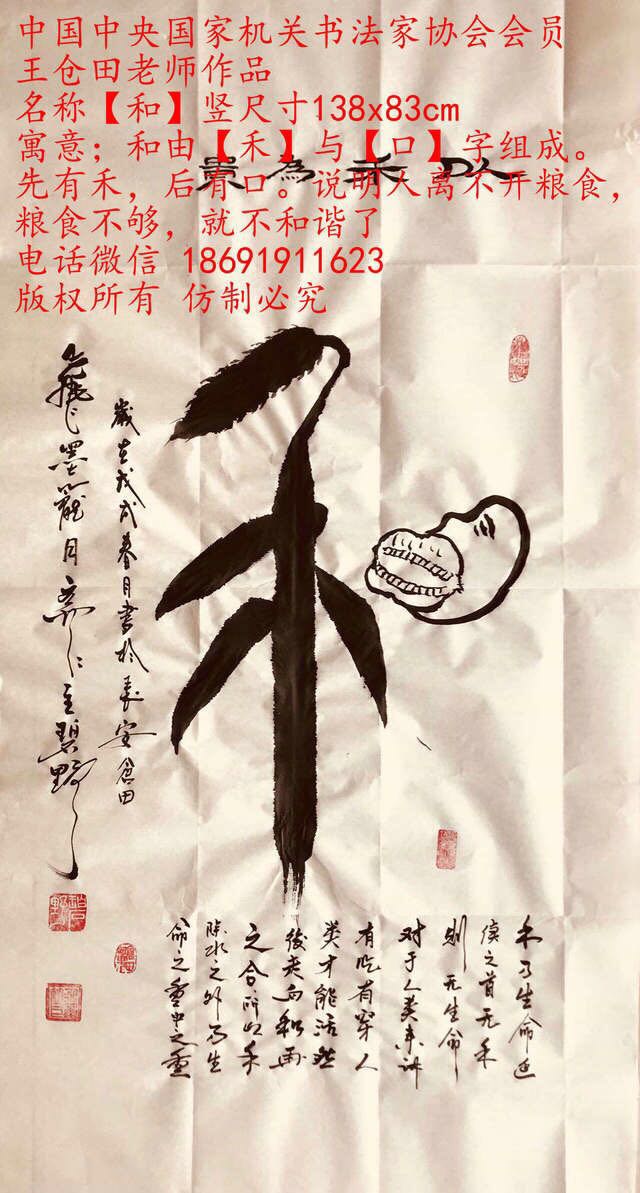 中国中央国家机关书法家协会会员
王仓田老师作品
名称【和】竖尺寸138x83cm
寓意；和由【禾】与【口】字组成。
先有禾，后有口。说明人离不开粮食，
粮食不够，就不和谐了
电话微信 18691911623
版权所有 仿制必究
以和为贵
禾乃生命延
续之首无禾
则无生命
对于人类来讲
有吃有穿人
类才能活然
后老而和画
之合所以禾
除水之外乃生
命之重中之重
岁在戊戌春月书于长安仓田
墨龙月斋仁主碧野